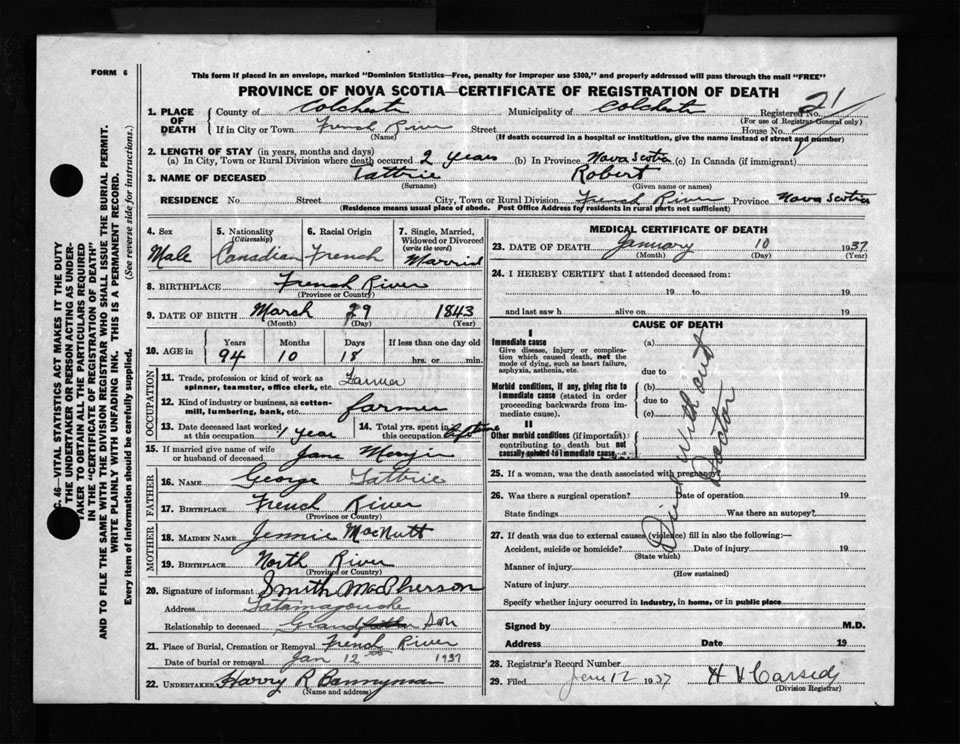 FORM 6
This form if placed in an envelope, marked "Dominion Statistics—Free, penalty for improper use $300," and properly addressed will pass through the mail "FREE"
PROVINCE OF NOVA SCOTIA—CERTIFICATE OF REGISTRATION OF DEATH
C. 46—VITAL STATISTICS ACT MAKES IT THE DUTY
THE UNDERTAKER OR PERSON ACTING AS UNDER-
TAKER TO OBTAIN ALL THE PARTICULARS REQUIRED
IN THE "CERTIFICATE OF REGISTRATION OF DEATH"
AND TO FILE THE SAME WITH THE DIVISION REGISTRAR WHO SHALL ISSUE THE BURIAL PERMIT.
WRITE PLAINLY WITH UNFADING INK. THIS IS A PERMANENT RECORD.
Every item of Information should be carefully supplied. (See reverse side for instructions.)
1. PLACE OF DEATH County of Colchester Municipality of Colchester Registered No. 21
(For use of Registrar General only)
If in City or Town French River Street House No.
(Name) (If death occurred in a hospital or institution, give the name instead of street and number)
2. LENGTH OF STAY (in years, months and days)
(a) In City, Town or Rural Division where death occurred 2 years (b) In Province Nova Scotia (c) In Canada (if immigrant)
3. NAME OF DECEASED Tattrie Robert
(Surname) (Given name or names)
RESIDENCE No. Street City, Town or Rural Division French River Province Nova Scotia
(Residence means usual place of abode. Post Office Address for residents in rural parts not sufficient)
4. Sex Male
5. Nationality (Citizenship) Canadian
6. Racial Origin French
7. Single, Married, Widowed or Divorced (write the word) Married
8. BIRTHPLACE French River
(Province or Country)
9. DATE OF BIRTH Marsh 29 1843
(Month) (Day) (Year)
10. AGE in Years Months Days If less than one day old
94 10 18 hrs. or min.
OCCUPATION
11. Trade, profession or kind of work as spinner, teamster, office clerk, etc. Farmer
12. Kind of industry or business, as cotton-mill, lumbering, bank, etc. farmer
13. Date deceased last worked at this occupation 1 year
14. Total yrs. spent in this occupation
15. If married give name of wife or husband of deceased Jane
FATHER
16. Name George Tattrie
17. Birthplace French River
(Province or Country)
MOTHER
18. Maiden Name Jennie MacNutt
19. Birthplace North River
(Province or Country)
20. Signature of informant Smith MacPherson
Address Tatamagouche
Relationship to deceased Grand Son
21. Place of Burial, Cremation or Removal French River
Date of burial or removal Jan 12th 1937
22. UNDERTAKER Harry R Bannyman
(Name and address)
MEDICAL CERTIFICATE OF DEATH
23. DATE OF DEATH January 10 1937
(Month) (Day) (Year)
24. I HEREBY CERTIFY that I attended deceased from:
19 to 19
and last saw h alive on 19
CAUSE OF DEATH
I
Immediate cause (a)
Give disease, injury or complication which caused death, not the mode of dying, such as heart failure, asphyxia, asthenia, etc.
due to
Morbid conditions, if any, giving rise to immediate cause (stated in order proceeding backwards from immediate cause). (b)
due to
(c)
II
Other morbid conditions (if important) contributing to death but not causally related to immediate cause.
Died without Doctor
25. If a woman, was the death associated with pregnancy?
26. Was there a surgical operation? Date of operation 19
State findings Was there an autopsy?
27. If death was due to external causes (violence) fill in also the following:—
Accident, suicide or homicide? Date of injury 19
(State which)
Manner of injury
(How sustained)
Nature of injury
Specify whether injury occurred in industry, in home, or in public place
Signed by M.D.
Address Date 19
28. Registrar's Record Number
29. Filed Jan 12 1937 H H Cassidy
(Division Registrar)